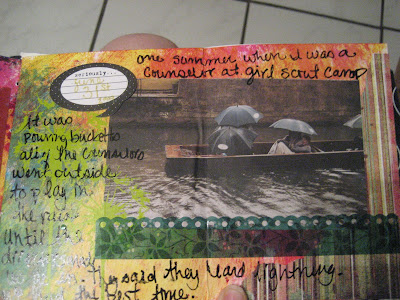 one summer when i was a
Counselor at girl scout camp
seriously...
It was
pouring buckets
all of the Counselors
went outside
to play in
the rain
until the
said they heard lightning.
the best time.